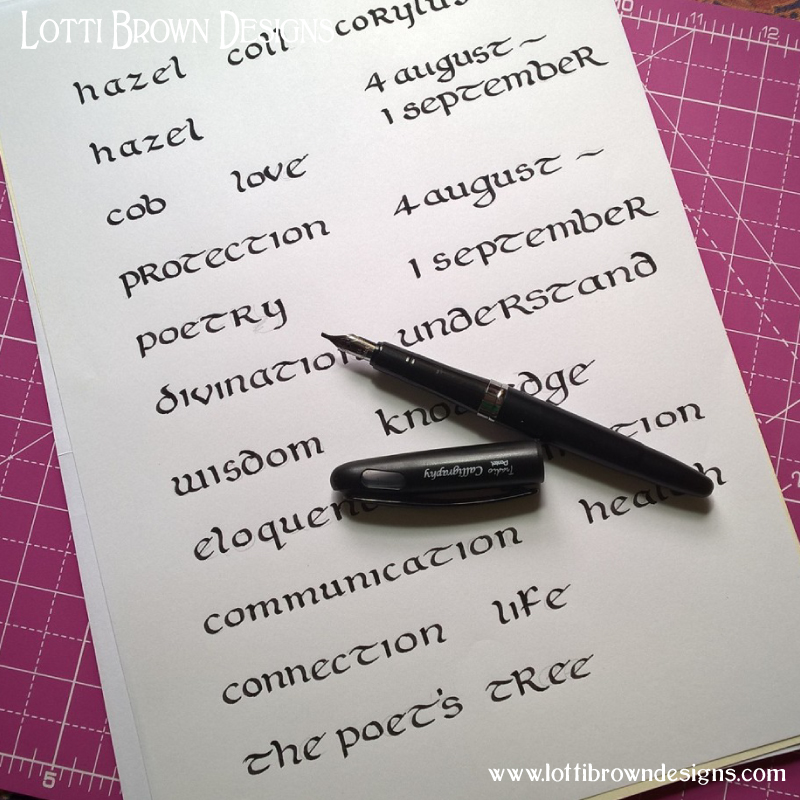 LOTTI BROWN DESIGNS
hazel coil corylus
4 august ~
1 september
hazel
cob love
4 august ~
protection
1 september
poetry
divination understand
wisdom
communication
connection life
the poet's tree
Tradio Calligraphy
Pentel
11 12
5
www.lottibrowndesigns.com